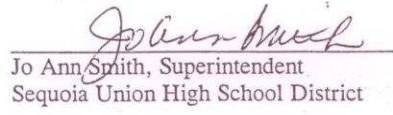 Jo Ann Smith
Jo Ann Smith, Superintendent
Sequoia Union High School District